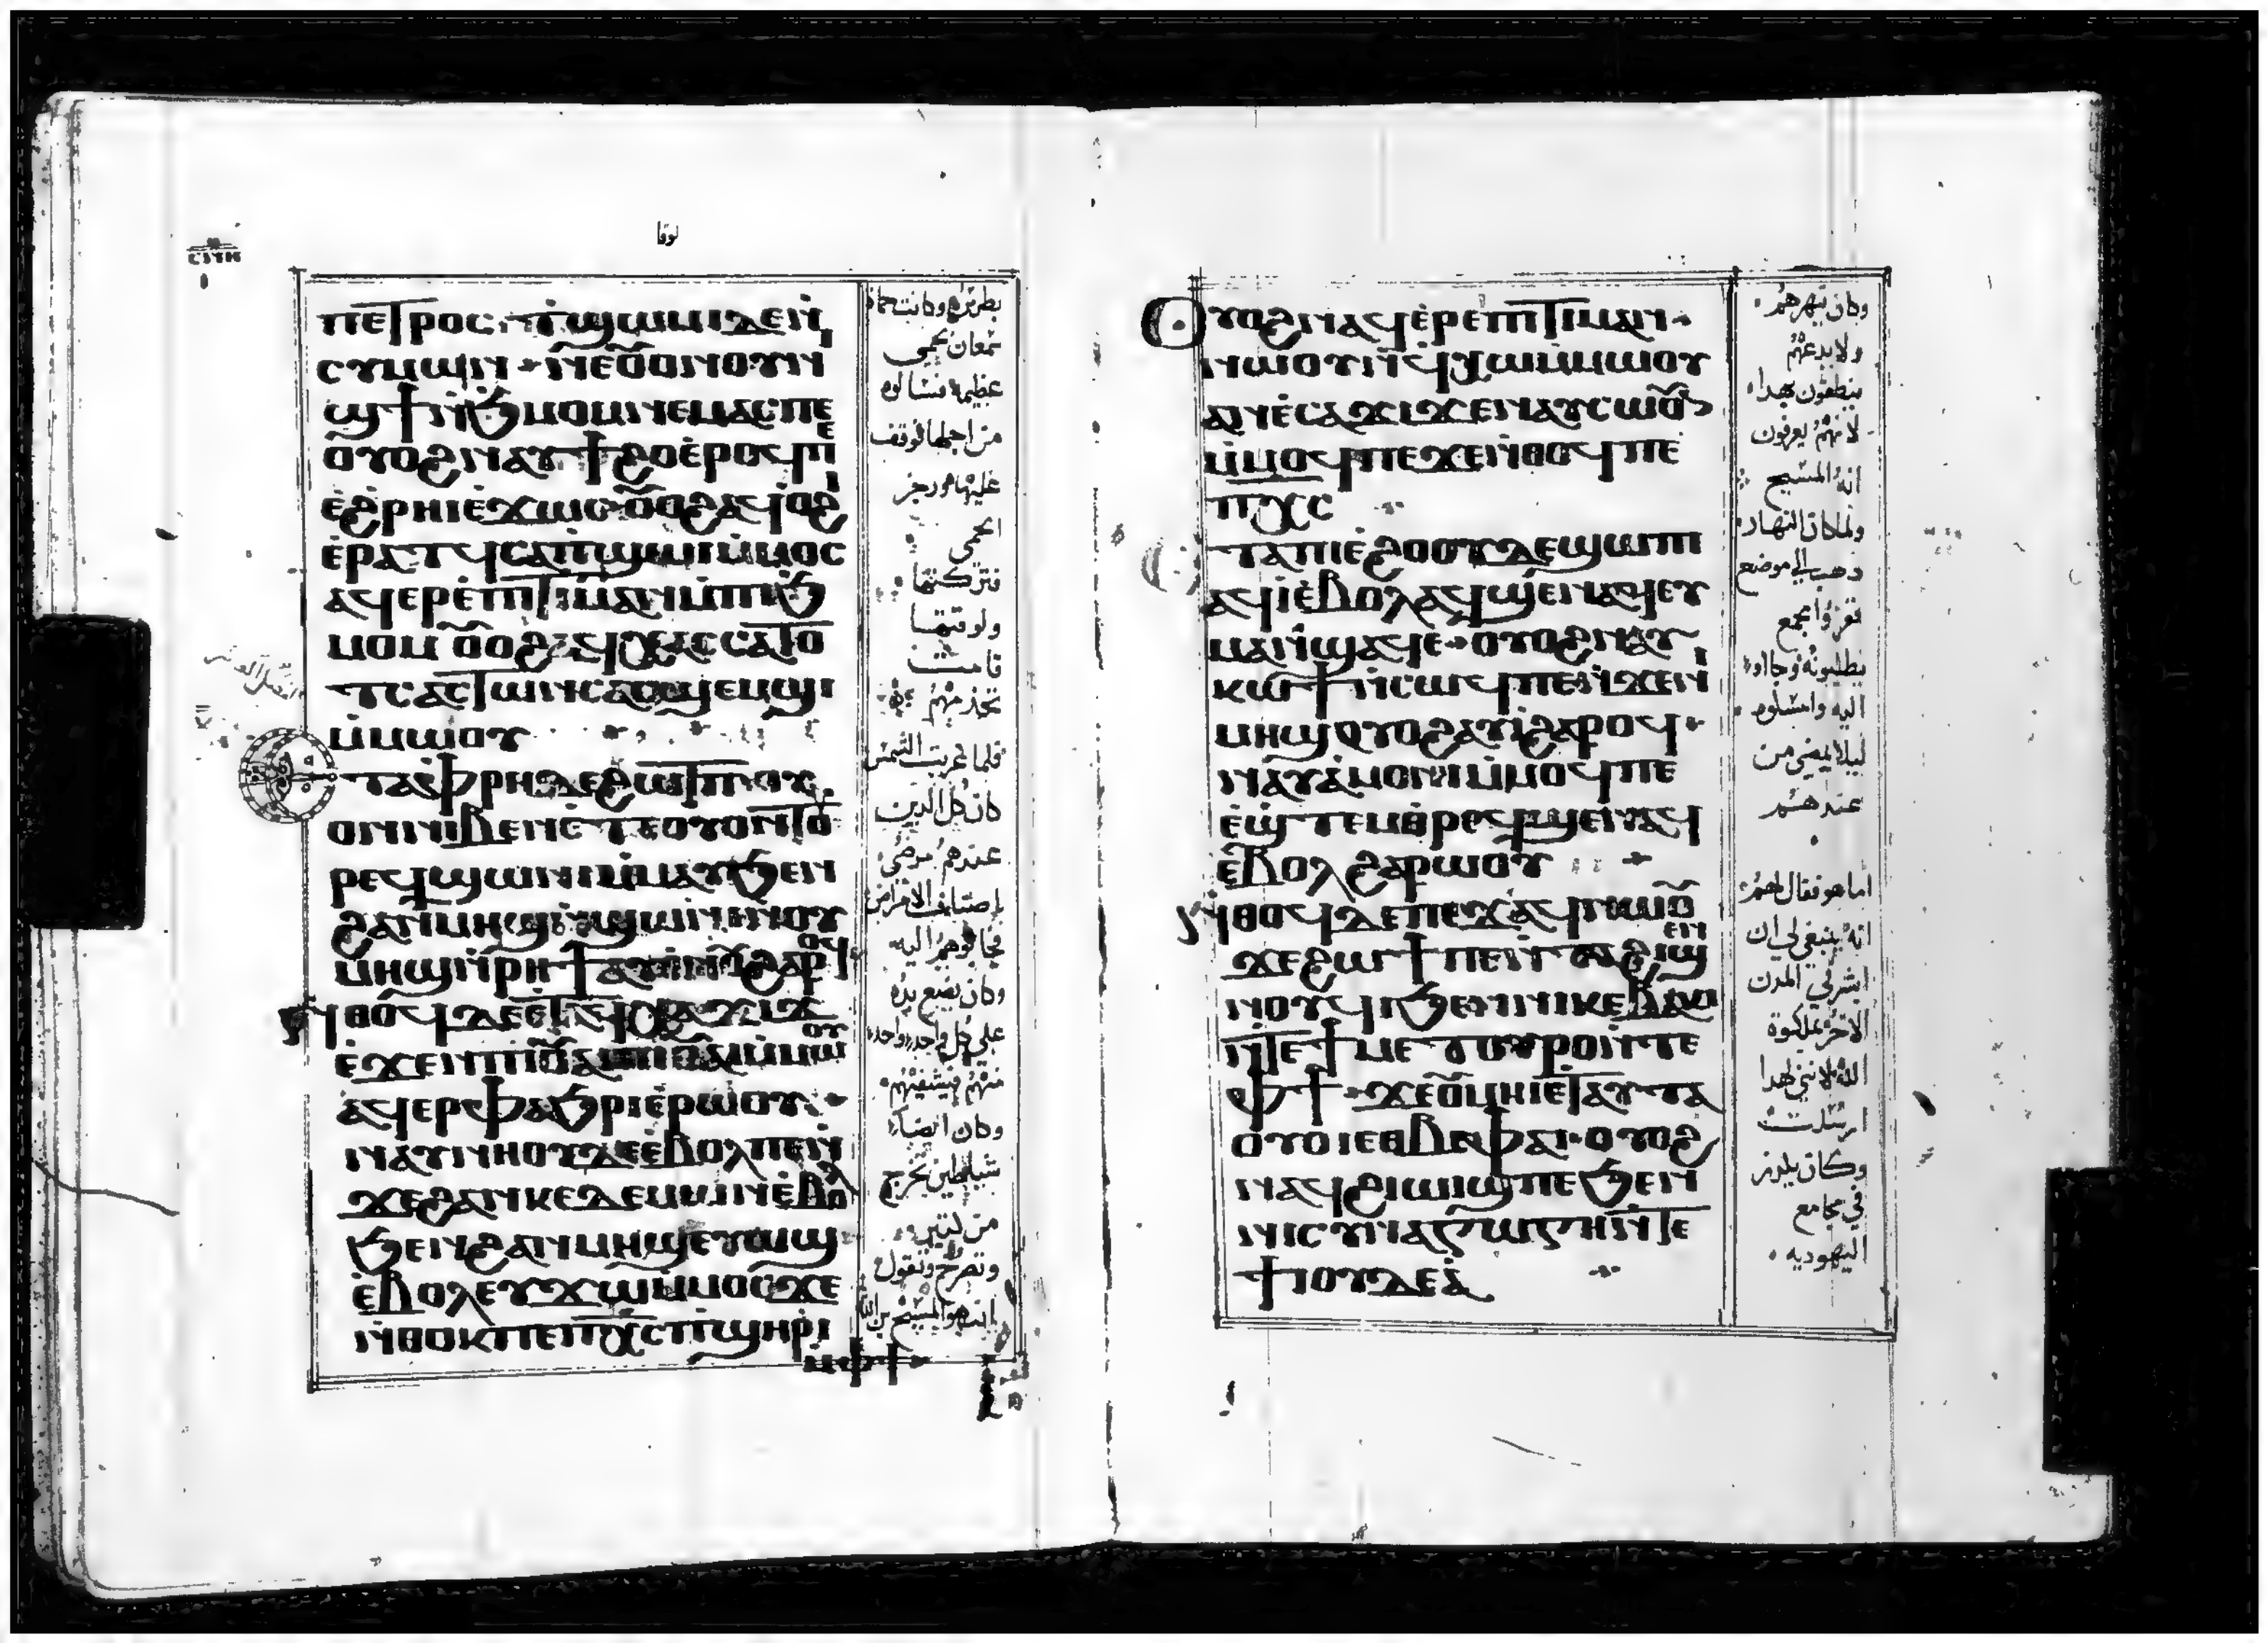 لوقا
ⲡⲉⲧⲣⲟⲥ ⲧ̇ϣⲱⲙⲓⲇⲉⲛ̇
ⲥⲩⲙⲱⲛ ⲛⲉⲟ̅ⲟⲛⲟⲩⲛ
ϣϯⲛ̇ϧⲙⲟⲙⲛⲉⲙⲁⲥⲡⲉ
ⲟⲩⲟϩⲛⲁⲩϯϩⲟⲉ̇ⲣⲟϥⲡⲉ
ⲉϩⲣⲏⲓⲉ̇ϫⲱⲥⲟ̅ⲟϩⲁϥⲟϩ̇ⲓ
ⲉ̇ⲣⲁⲧϥⲥⲁⲡ̇ϣⲱⲓⲙ̇ⲙⲟⲥ
ⲁϥⲉⲣⲉ̇ⲡⲓⲧⲓⲙⲁⲛⲙ̇ⲡⲓϧ
ⲙⲟⲙ ⲟ̅ⲟϩ ⲁϥⲭⲁⲥ ⲥⲁⲧⲟ
ⲧⲥⲁⲥⲧⲱⲛⲥⲁⲥϣⲉⲙϣⲓ
ⲙ̇ⲙⲱⲟⲩ
ⲉⲧⲁⲫⲣⲏⲇⲉϩⲱⲧⲡⲟⲩ
ⲟⲛⲛⲓⲃⲉⲛⲉ̇ⲧⲉⲟⲩⲟⲛⲧⲟ
ⲣⲉϥϣⲱⲛⲓⲙ̇ⲙⲁⲩϧⲉⲛ
ϩⲁⲛⲙⲏϣⲛ̇ϣⲱⲛⲓⲛⲟⲩ
ⲙⲏϣⲛ̇ⲣⲏϯⲁⲩⲉⲛⲟ̅ϩⲁⲣⲟϥ
ⲛ̇ⲑⲟϥⲇⲉⲉⲧⲉϥⲭⲁϫⲓϫ
ⲉ̇ϫⲉⲛⲡⲓⲟ̅ⲁⲓⲡⲓⲟ̅ⲁⲓⲙ̇ⲙⲱⲟⲩ
ⲁϥⲉⲣⲫⲁϧⲣⲓⲉ̇ⲣⲱⲟⲩ
ⲛⲁⲩⲛⲏⲟⲩⲇⲉⲉ̇ⲃⲟⲗⲡⲉⲛ̇
ϫⲉϩⲁⲛⲕⲉⲇⲉⲙⲱⲛⲉ̇ⲃⲟⲗ
ϧⲉⲛϩⲁⲛⲙⲏϣⲉⲩⲱϣ
ⲉ̇ⲃⲟⲗⲉⲩϫⲱⲙ̇ⲙⲟⲥϫⲉ
ⲛ̇ⲑⲟⲕⲡⲉⲡⲭ̅ⲥⲡ̇ϣⲏⲣⲓ
ⲙ̇ⲫϯ
عظيمة فسالوه
من اجلها فوقف
فلما غربت الشمس
كان كل الذين
عندهم مرضى
وكان يضع يده
وكان ايضا
شياطين تخرج
من كثيرين
وتصرخ وتقول
ⲟⲩⲟϩⲛⲁϥⲉ̇ⲣⲉⲡⲓⲧⲓⲙⲁⲛ
ⲛⲱⲟⲩⲛ̇ϥⲭⲱⲙ̇ⲙⲱⲟⲩ
ⲁⲛⲉ̇ⲥⲁϫⲓϫⲉⲛⲁⲩⲥⲱⲟ̅
ⲙ̇ⲙⲟϥⲡⲉϫⲉⲛ̇ⲑⲟϥⲡⲉ
ⲡⲭ̅ⲥ
ⲉⲧⲁⲡⲓⲉ̇ϩⲟⲟⲩⲇⲉϣⲱⲡⲓ
ⲁϥⲓ̇ⲉ̇ⲃⲟⲗⲁϥϣⲉⲛⲁϥⲉⲩ
ⲙⲁⲛ̇ϣⲁϥⲉ ⲟⲩⲟϩⲛⲁⲩ
ⲕⲱϯⲛ̇ⲥⲱϥⲡⲉⲛ̇ϫⲉⲛⲓ
ⲙⲏϣⲟⲩⲟϩⲁⲩⲓ̇ϩⲁⲣⲟϥ
ⲛⲁⲩⲁ̇ⲙⲟⲛⲓⲙ̇ⲙⲟϥⲡⲉ
ⲉ̇ϣⲧⲉⲙⲑⲣⲉϥϣⲉⲛⲁϥ
ⲉ̇ⲃⲟⲗϩⲁⲣⲱⲟⲩ
ⲛ̇ⲑⲟϥⲇⲉⲡⲉϫⲁϥⲛⲱⲟ̅
ϫⲉϩⲱϯⲡⲉⲛ̇ⲧⲁϩⲓϣⲉⲛ
ⲛⲟⲩϥⲓϧⲉⲛⲛⲓⲕⲉⲃⲁⲕⲓ
ⲛ̇ⲧⲉϯⲙⲉⲧⲟⲩⲣⲟⲛ̇ⲧⲉ
ⲫϯ ϫⲉⲟ̅ⲙⲏⲓⲉⲧⲁⲩⲧⲁ
ⲟⲩⲟⲓⲉⲑⲃⲉⲫⲁⲓ ⲟⲩⲟϩ
ⲛⲁϥϩⲓⲱⲓϣⲡⲉϧⲉⲛ
ⲛⲓⲥⲩⲛⲁⲅⲱⲅⲏⲛ̇ⲧⲉ
ϯⲓⲟⲩⲇⲉⲁ̇
وكان ينهرهم
ولا يدعهم
ينطقون بهذا
لانهم يعرفون
انه المسيح
ولما كان النهار
ذهب الى موضع
اليه وامسكوه
ليلا يمضي من
عندهم
اما هو فقال لهم
انه ينبغي لي ان
ابشر في المدن
الاخر بملكوة
الله لانني لهذا
ارسلت
وكان يكرز
في مجامع
اليهوديه